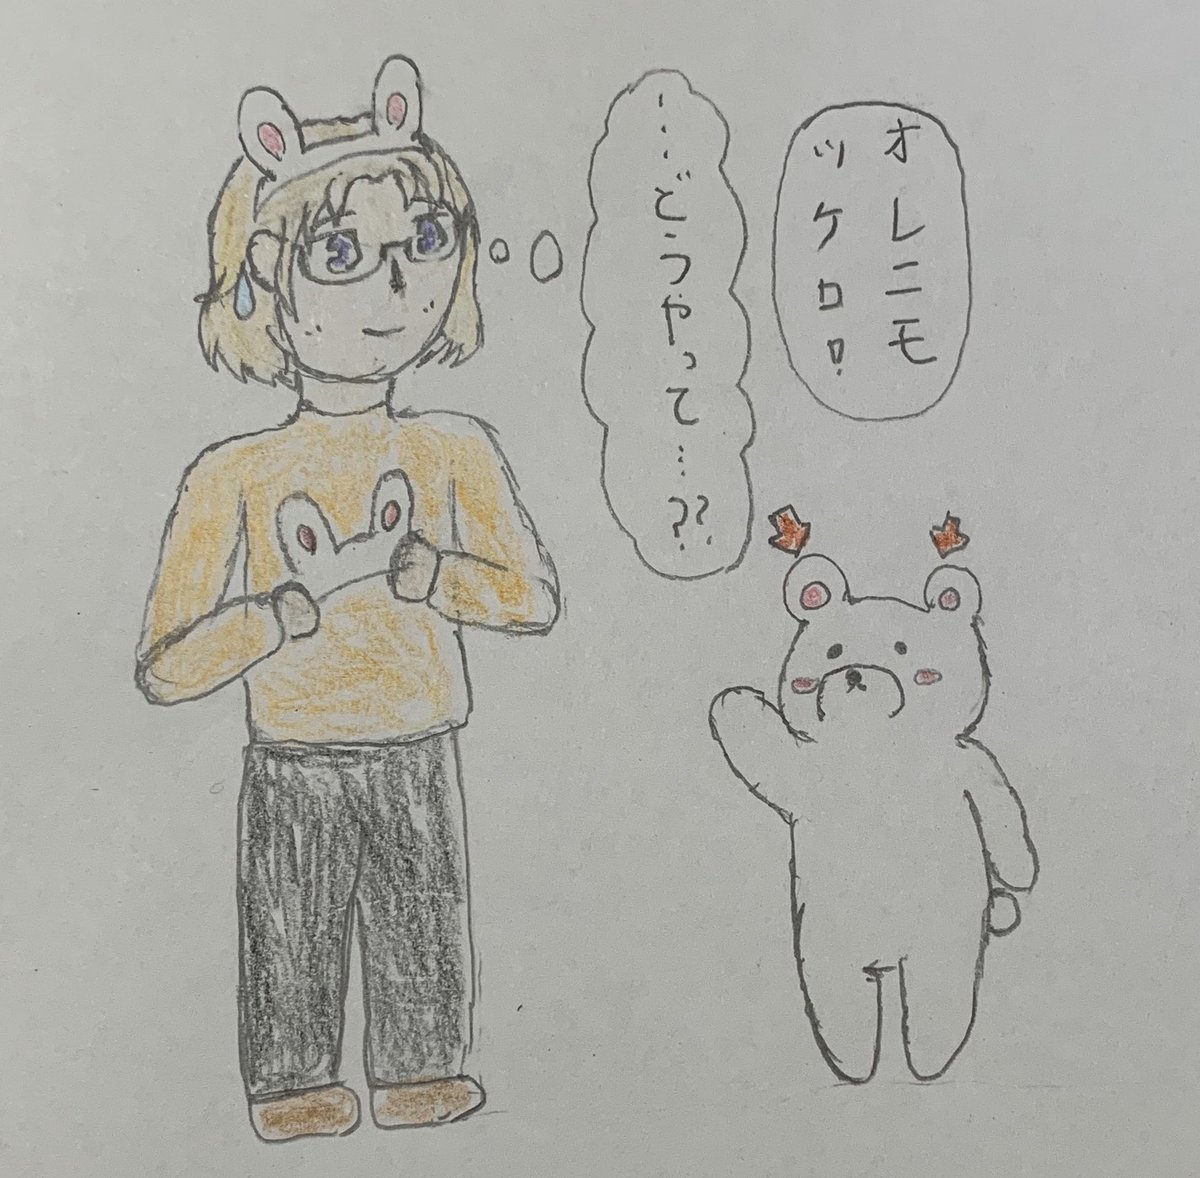 オレニモ
ツケロロ!
……どうやって…??